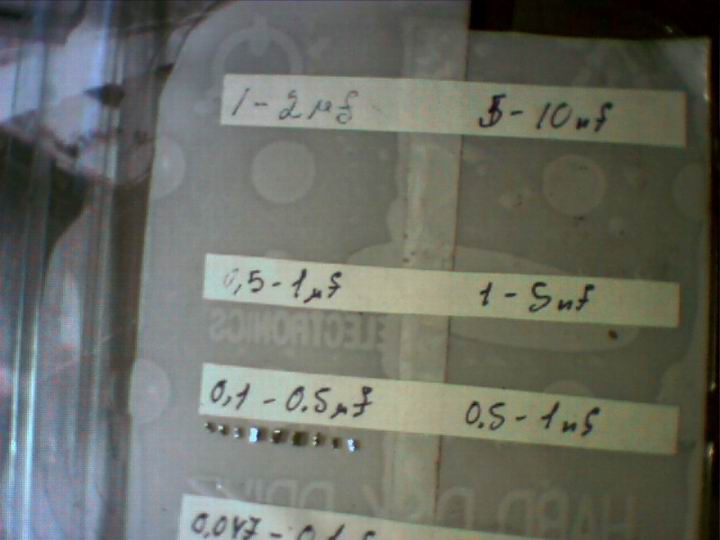 1 - 2 μf
5 - 10 nf
0,5 - 1 μf
1 - 5 nf
ELECTRONICS
0,1 - 0.5 μf
0.5 - 1 nf
HARD DISK DRIVE
0,047 - 0.1